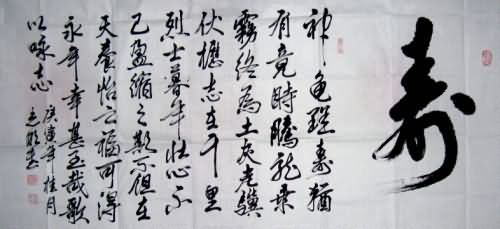 寿
神龟雖寿猶
有竟時騰蛇乘
霧終為土灰老驥
伏櫪志在千里
烈士暮年壮心不
已盈縮之期不但在
天養怡之福可得
永年幸甚至哉歌
以咏志
庚寅年桂月